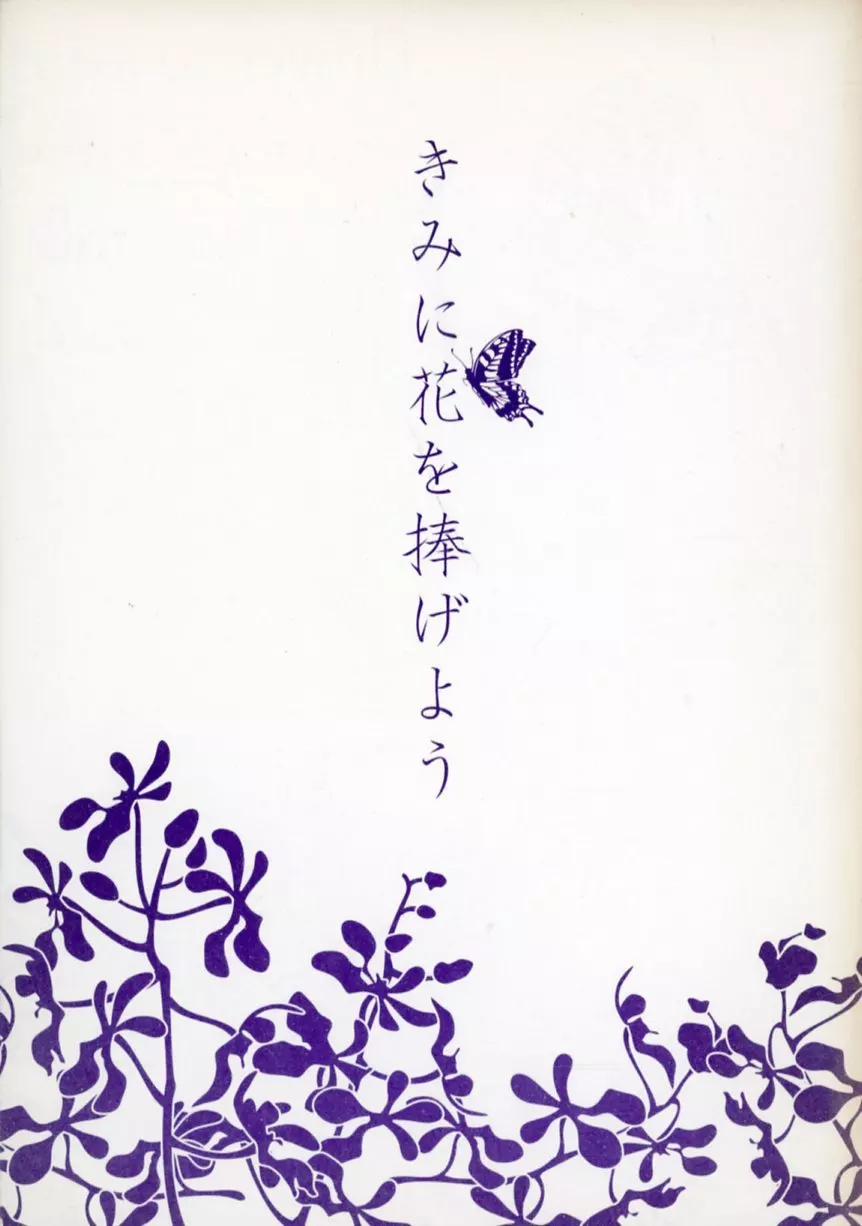 きみに花を捧げよう